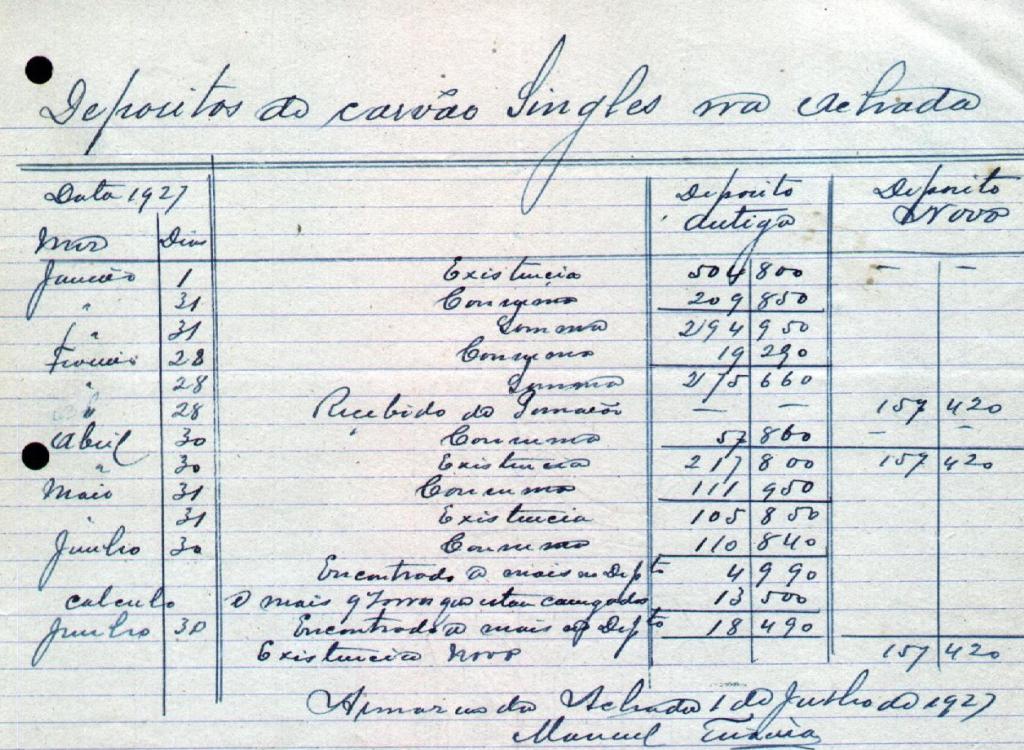 Depositos de carvão Singles na Achada
Data 1927 Deposito Antigo Deposito Novo
Mez Dias
Janeiro 1 Existencia 504 800 — —
" 31 Consumo 209 850
" 31 Somma 294 950
Fevereiro 28 Consumo 19 290
" 28 Somma 275 660
" 28 Recebido do — — 157 420
Abril 30 Consumo 57 860 — —
" 30 Existencia 217 800 157 420
Maio 31 Consumo 111 950
31 Existencia 105 850
Junho 30 Consumo 110 840
Encontrado a mais no Depto 4 990
calculo a mais 9 que estam carregados 13 500
Junho 30 Encontrado a mais no Depto 18 490
Existencia Novo 157 420
Armazens da Achada 1 de Julho de 1927
Manuel Teixeira